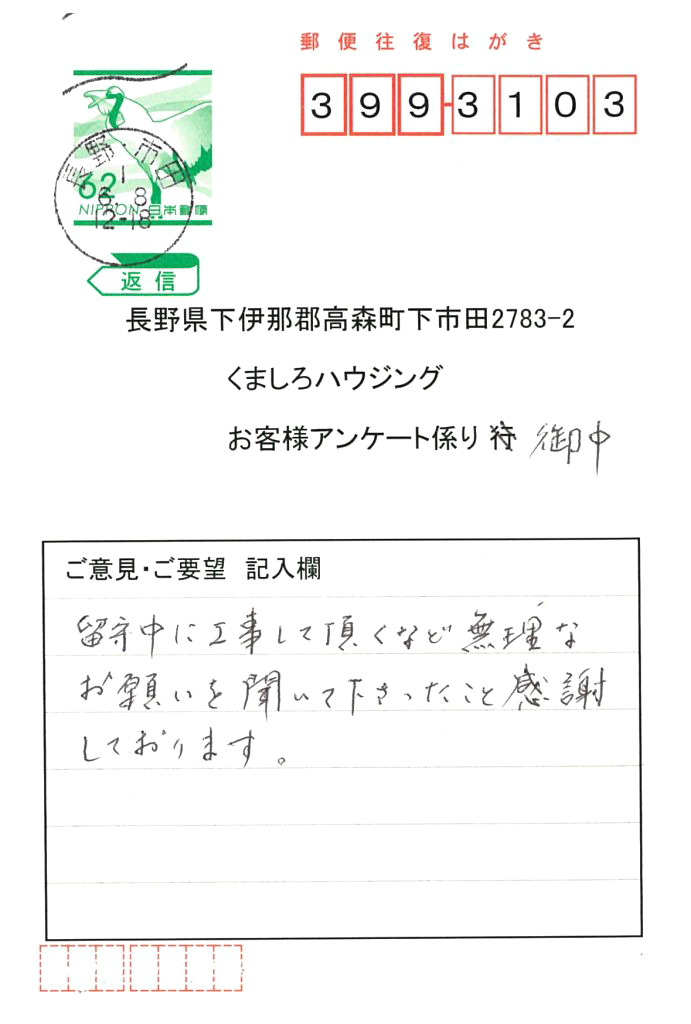 郵便往復はがき
399-3103
長野・市田
62
1
6. 8
NIPPON 日本郵便
12-18
返信
長野県下伊那郡高森町下市田2783-2
くましろハウジング
お客様アンケート係り 御中
ご意見・ご要望 記入欄
留守中に工事して頂くなど無理な
お願いを聞いて下さったこと感謝
しております。